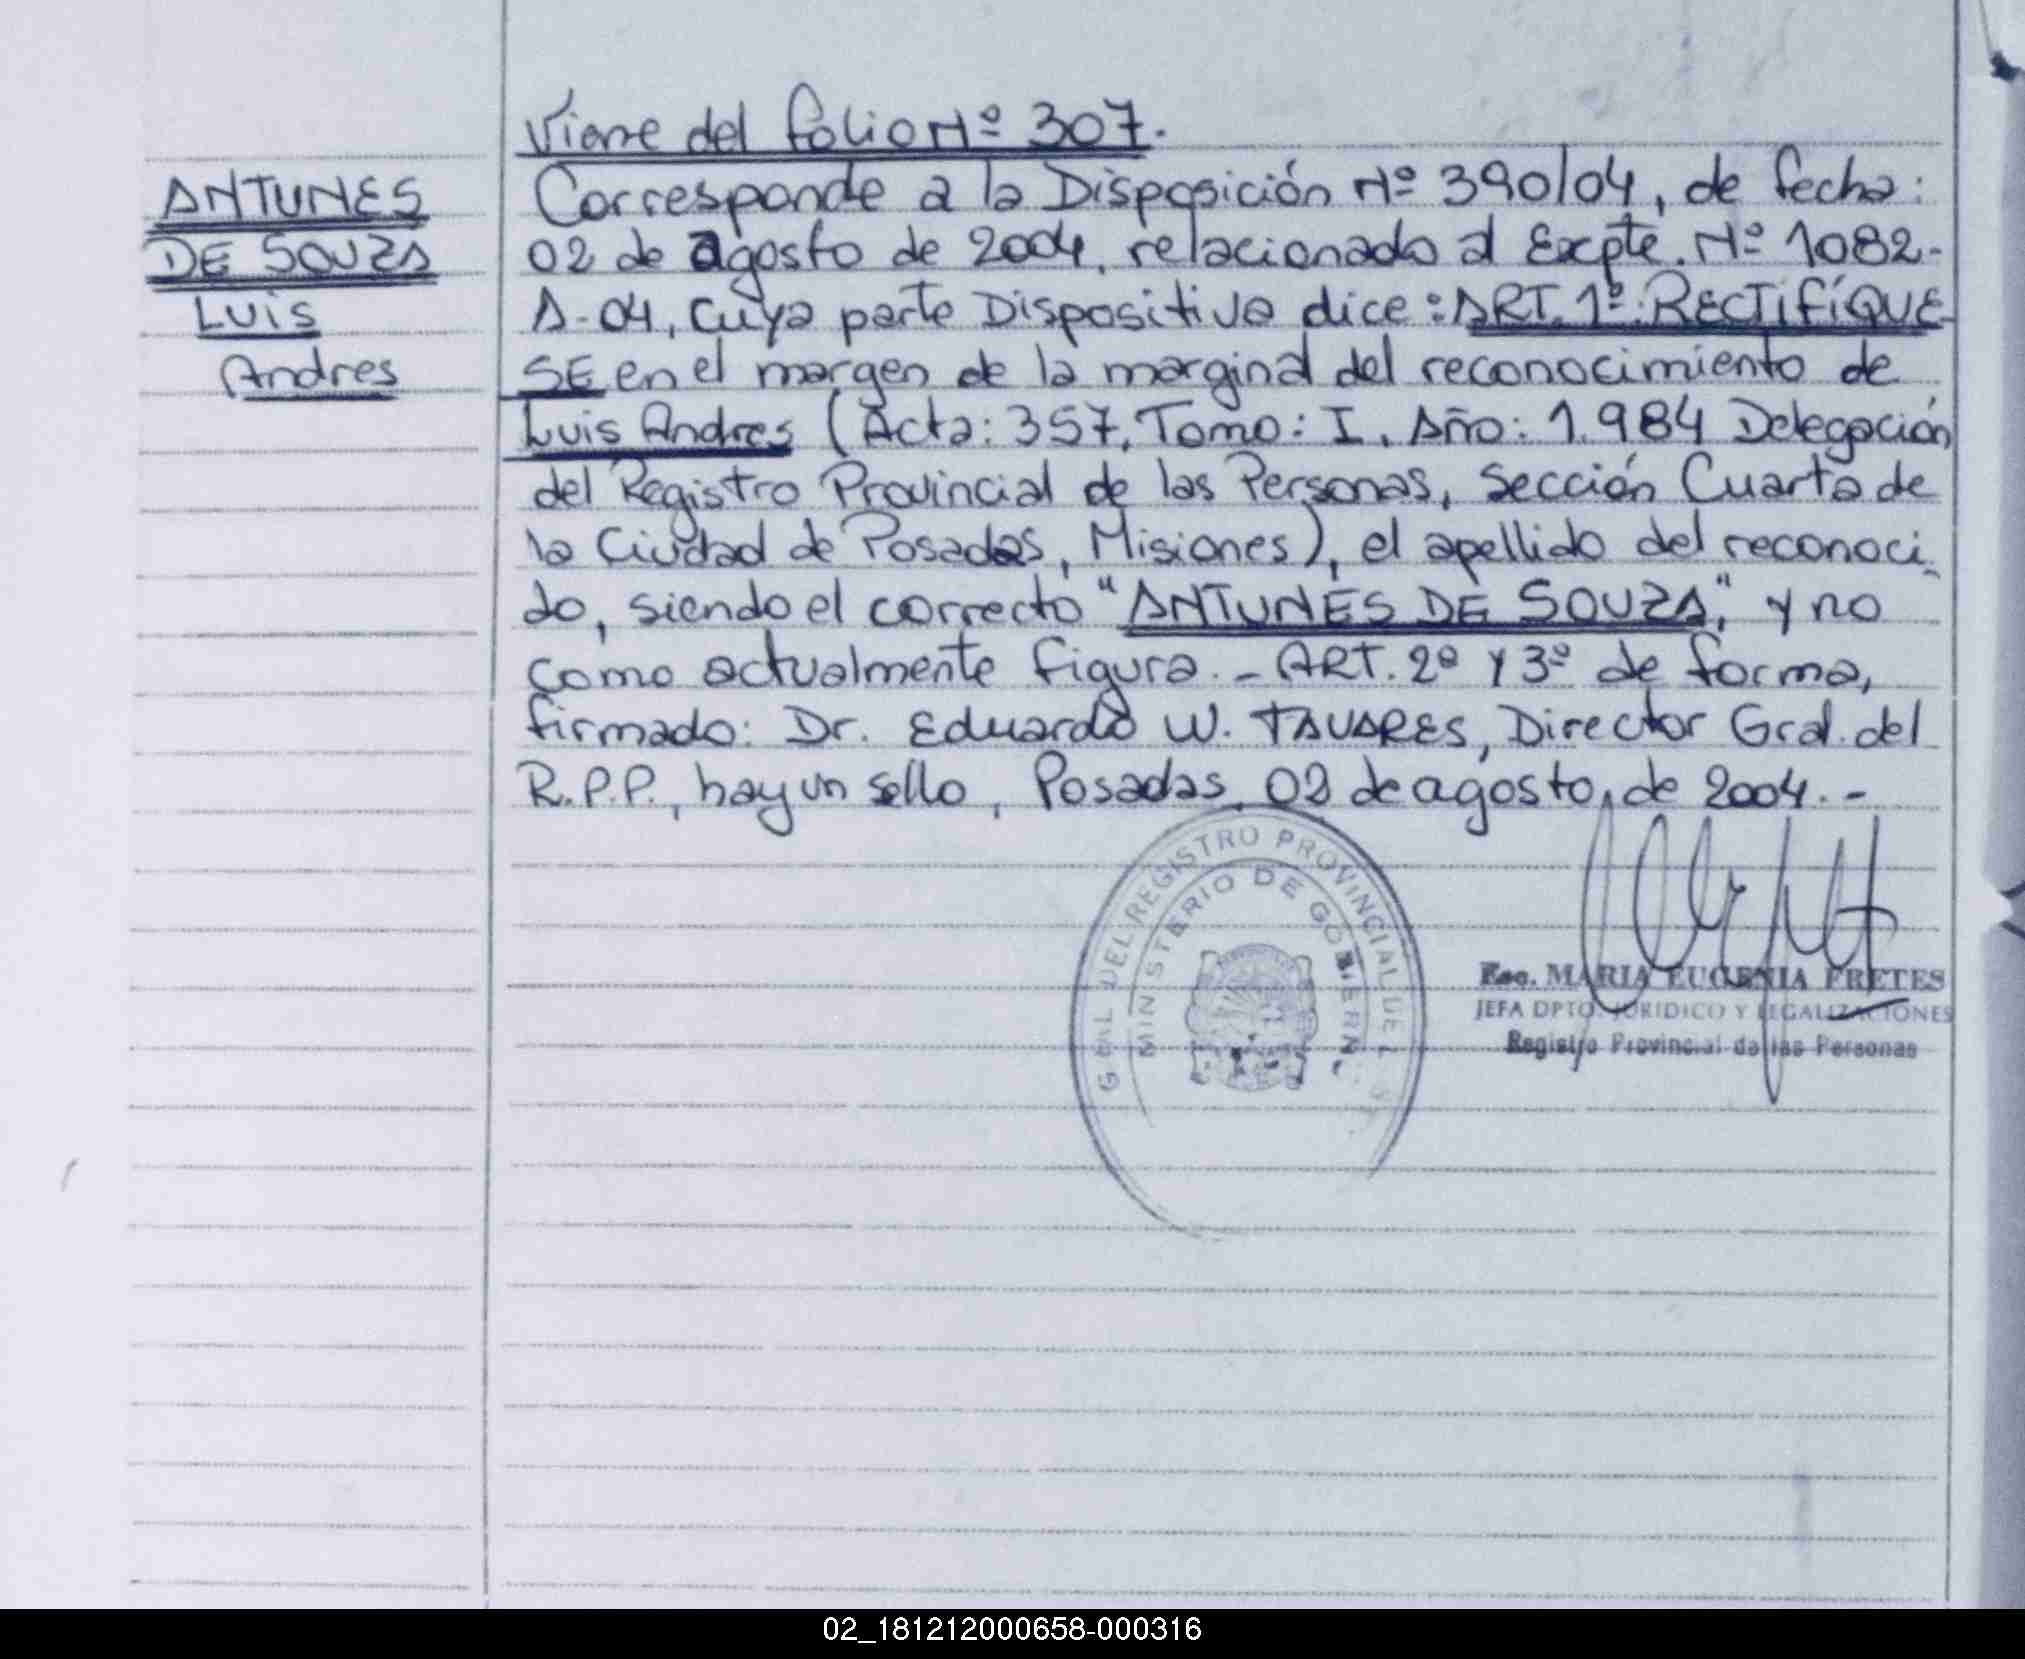 Viene del folio Nº 307.
ANTUNES
DE SOUZA
Luis
Andres
Corresponde a la Disposición Nº 390/04, de fecha:
02 de agosto de 2004, relacionado al Excpte. Nº 1082-
A-04, cuya parte Dispositiva dice: ART. 1º: RECTIFÍQUE
SE en el margen de la marginal del reconocimiento de
Luis Andres (Acta: 357, Tomo: I, Año: 1.984 Delegación
del Registro Provincial de las Personas, Sección Cuarta de
la Ciudad de Posadas, Misiones), el apellido del reconoci-
do, siendo el correcto "ANTUNES DE SOUZA," y no
como actualmente figura.- ART. 2º y 3º de forma,
firmado: Dr. Eduardo W. TAVARES, Director Gral. del
R.P.P., hay un sello, Posadas, 02 de agosto, de 2004.-
GRAL DEL REGISTRO PROVINCIAL DE
MINISTERIO DE GOBIERNO
Esc. MARIA EUGENIA FRETES
JEFA DPTO. JURIDICO Y LEGALIZACIONES
Registro Provincial de las Personas
02_181212000658-000316